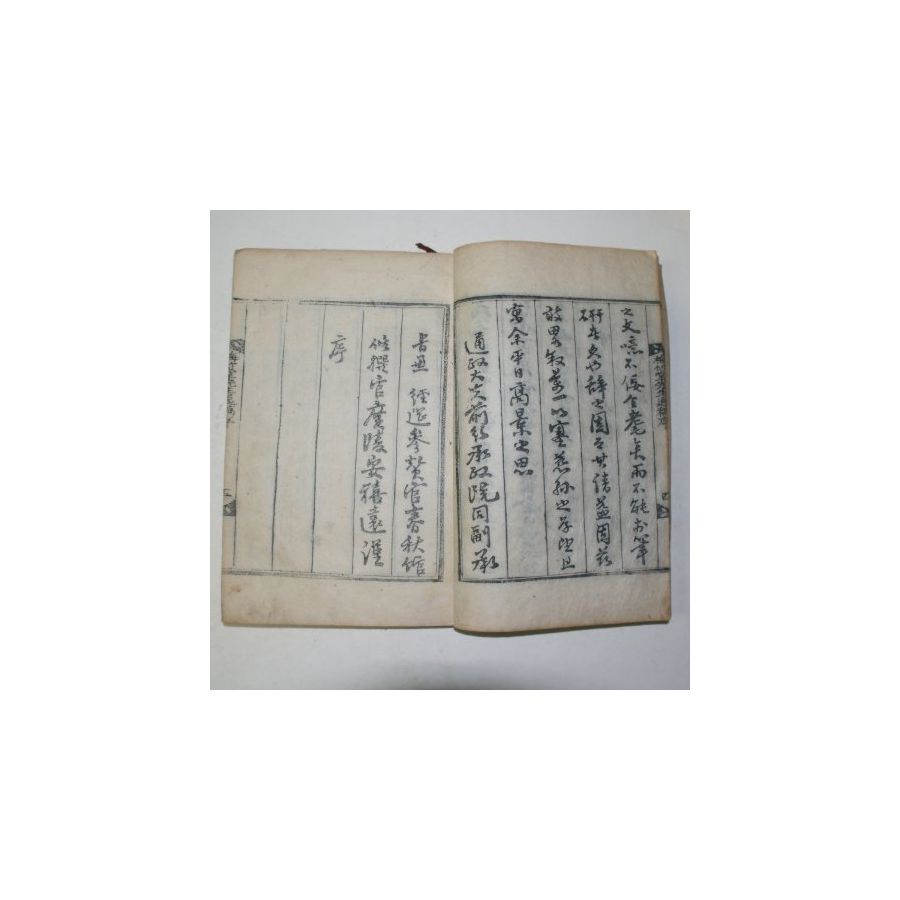 之文噫不佞今耄矣而不能於筆
研者久也辭之固而其請益固茲
敢略叙若一以塞慈孫之孝思且
寓余平日高景之思
通政大夫前行承政院同副承
旨兼 經筵參贊官春秋館
修撰官廣陵安禧遠謹
序